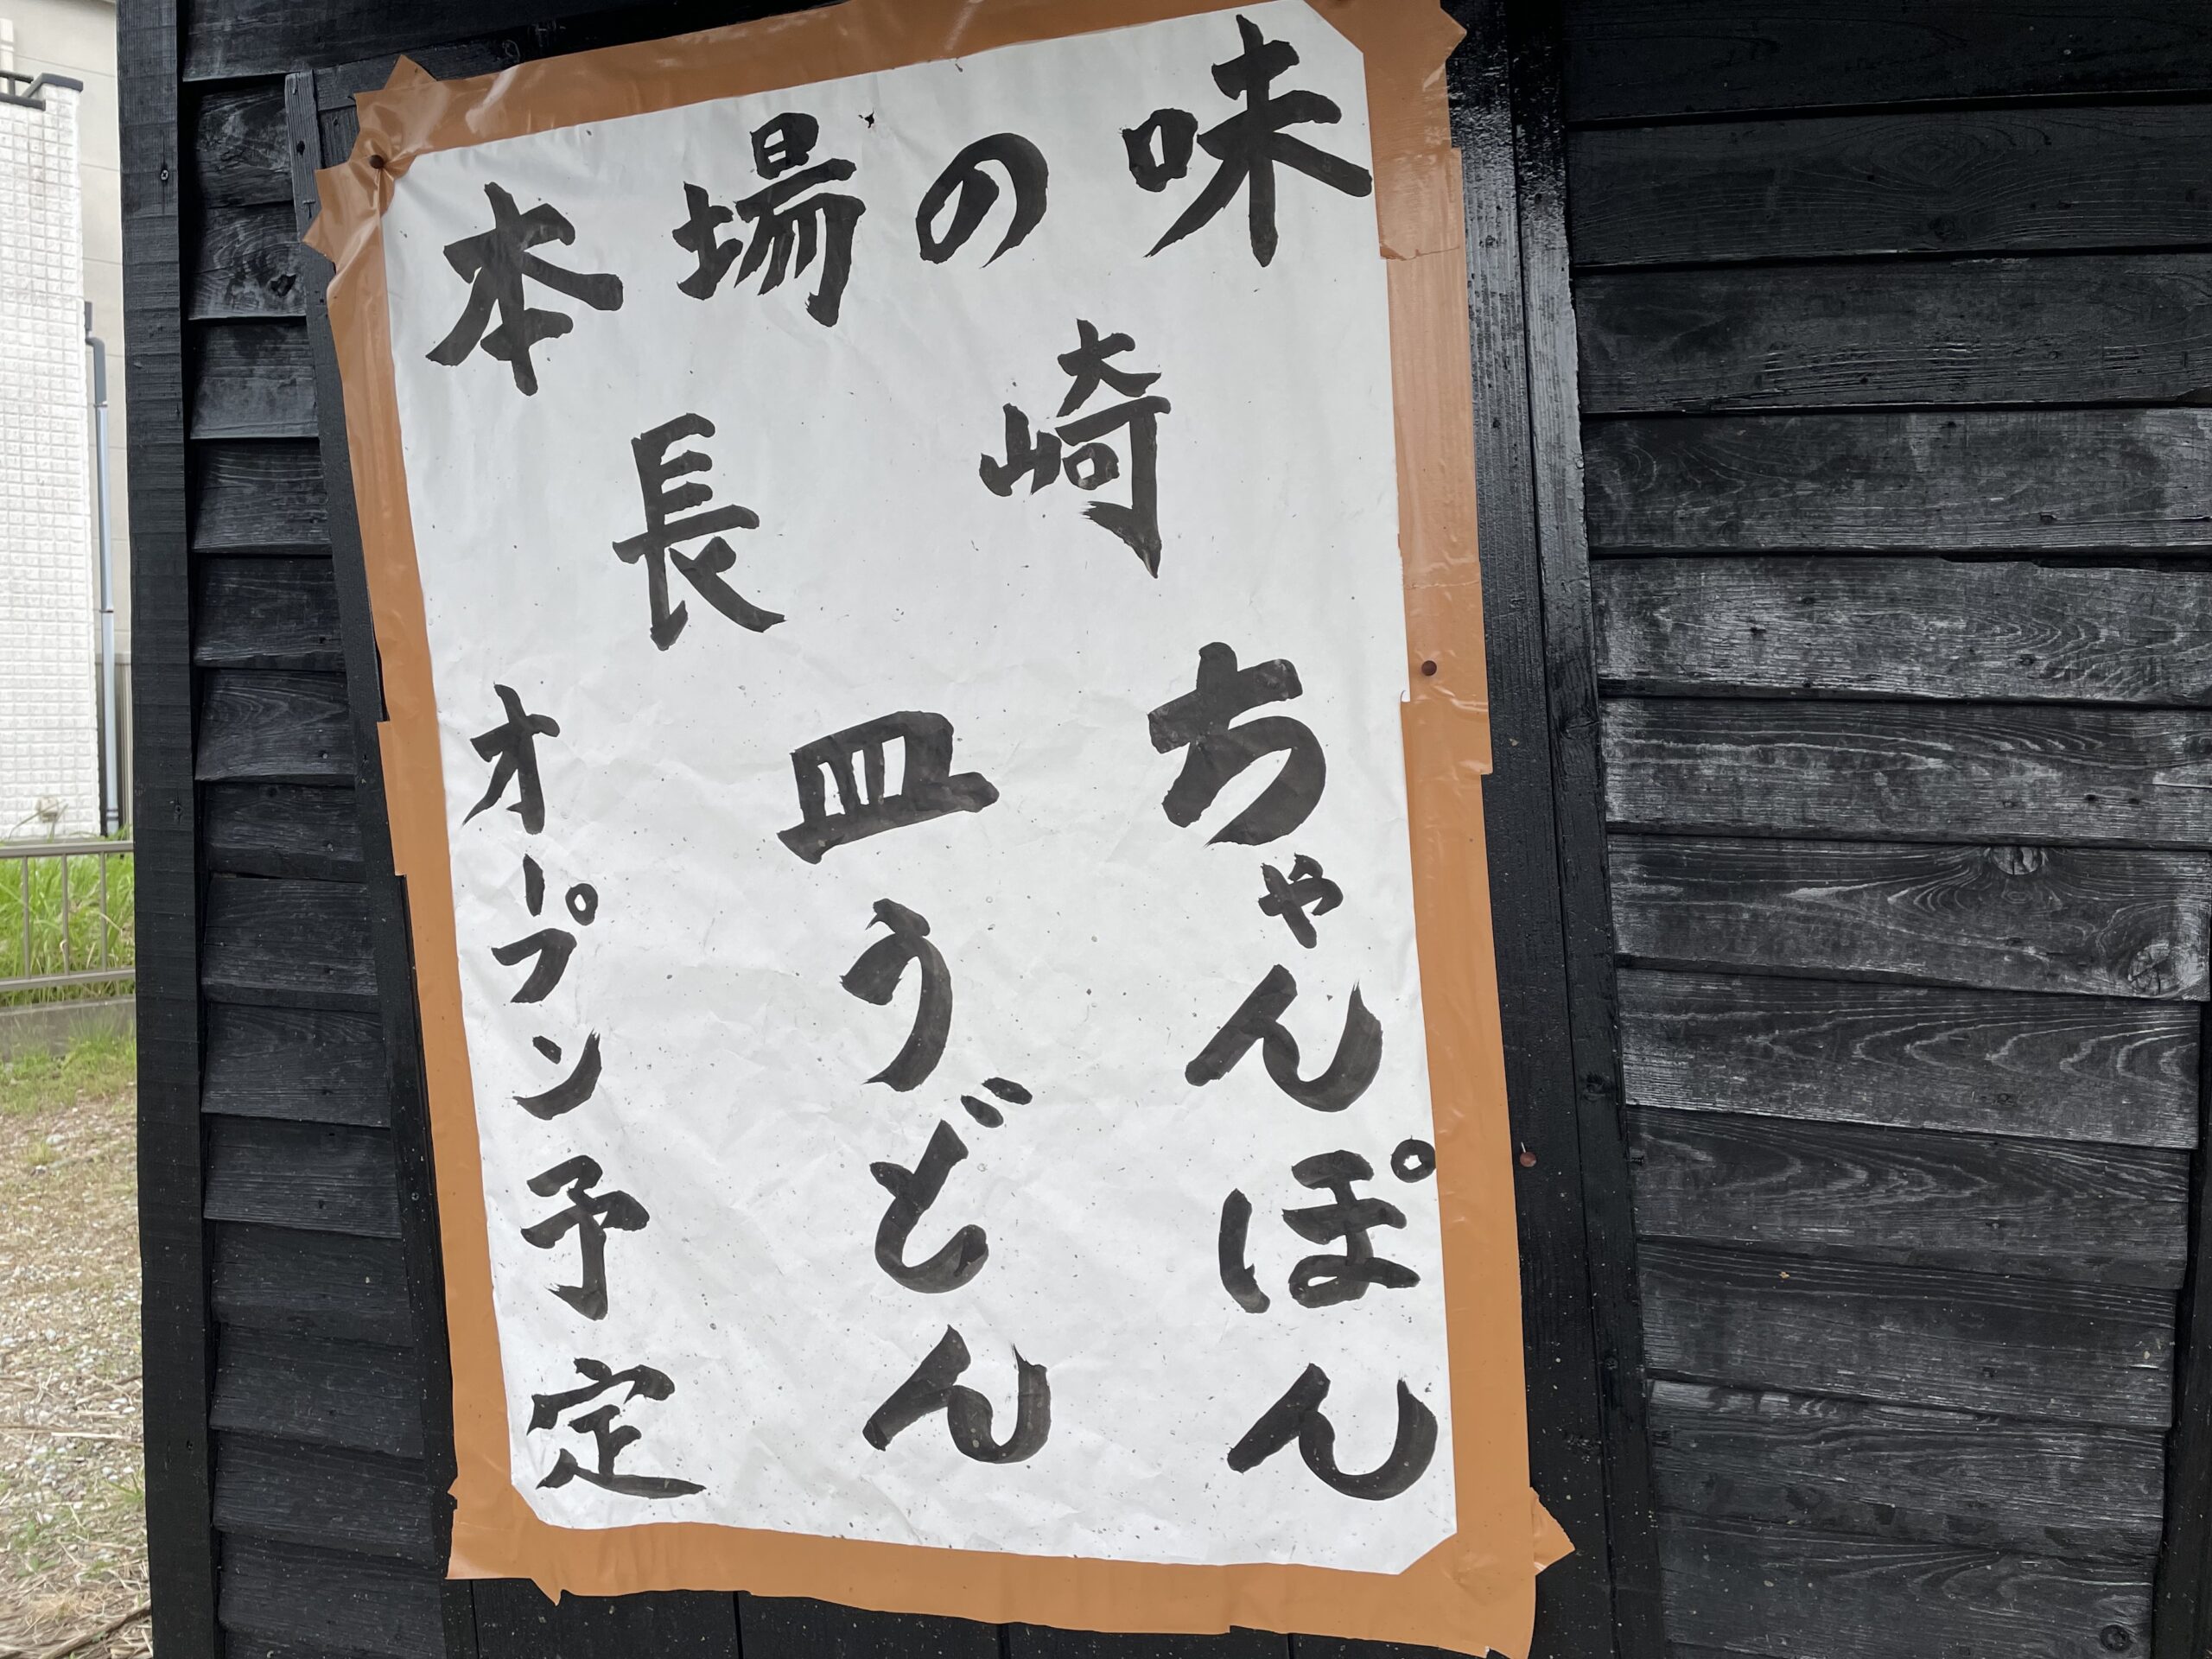 本場の味
長崎
ちゃんぽん
皿うどん
オープン予定